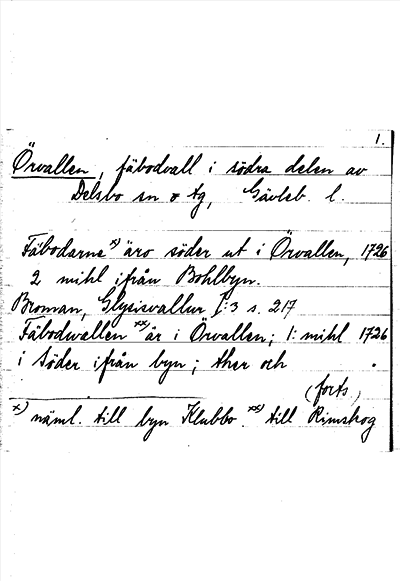 1.
Örvallen, fäbodvall i södra delen av
Delsbo sn o tg, Gävleb. l.
Fäbodarne x) äro söder ut i Örvallen, 1726
2 mihl ifrån Bohlbyn.
Broman, Glysisvallur I:3 s. 217
Fäbodwallen xx) är i Örvallen; 1: mihl 1726
i söder ifrån byn; ther och
(forts.)
x) näml. till byn Klubbo. xx) till Rimskog